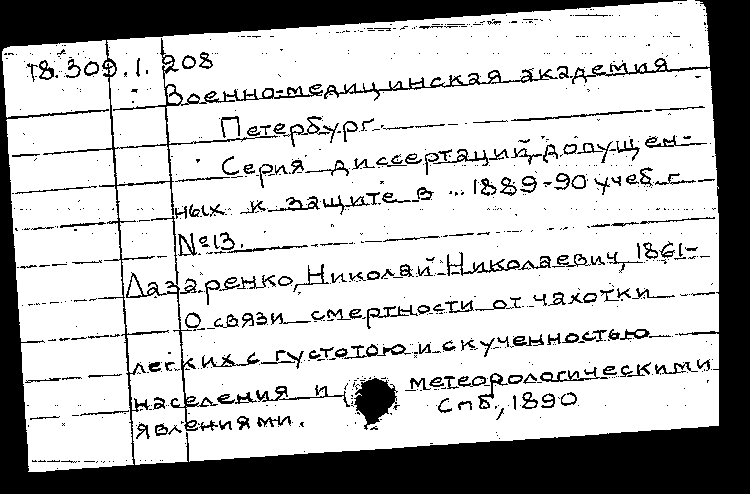 18.309.1.208
Военно-медицинская академия
Петербург.
Серия диссертаций, допущен-
ных к защите в ... 1889-90 учеб. г.
№13.
Лазаренко, Николай Николаевич, 1861-
О связи смертности от чахотки
легких с густотою и скученностью
населения и метеорологическими
явлениями. Спб., 1890